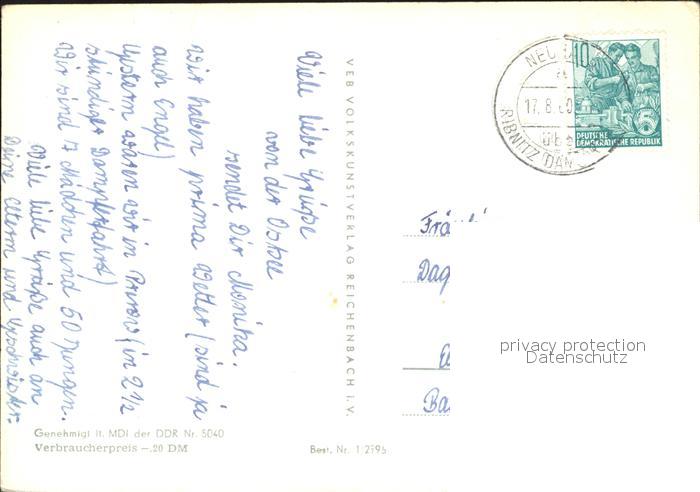 Viele liebe Grüße
von der Ostsee
sendet Dir Monika.
Wir haben prima Wetter (sind ja
auch Engel)
Gestern waren wir in Prerow (in 2 1/2
stündiger Dampferfahrt)
Wir sind 17 Mädchen und 50 Jungen.
Viele liebe Grüße auch an
Deine Eltern und Geschwister.
VEB VOLKSKUNSTVERLAG REICHENBACH I. V.
NEU
17. 8. 60
üb
RIBNITZ DAM
10
5
DEUTSCHE
DEMOKRATISCHE REPUBLIK
Frä
Dag
Ba
privacy protection
Datenschutz
Genehmigt lt. MDI der DDR Nr. 5040
Verbraucherpreis –.20 DM
Best. Nr. 1/2196